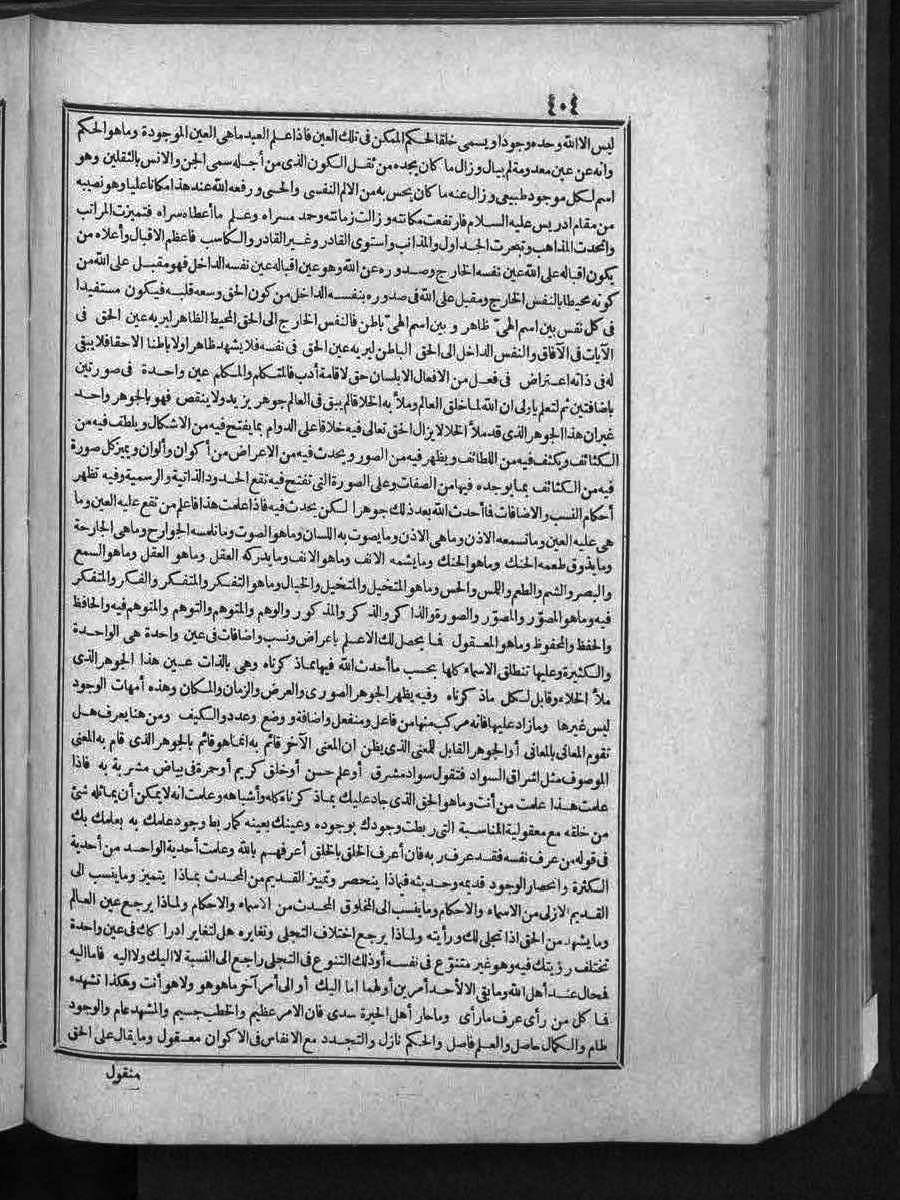 ٤٠٤
ليس الا الله وحده وجودا ويسمى خلقا لحكم الممكن فى تلك العين فاذا علم العبد ما هى العين الموجودة وما هو الحكم
وأنه عن عين معدومة لم يبال وزال ما كان يجده من ثقل الكون الذى من أجله سمى الجن والانس بالثقلين وهو
اسم لكل موجود طبيعى وزال عنه ما كان يحس به من الالم النفسى والحسى ورفعه الله عند هذا مكانا عليا وهو نصيبه
من مقام ادريس عليه السلام فارتفعت مكانته وزالت زمانته وحمد مسراه وعلم ما أعطاه سراه فتميزت المراتب
واتحدت المذاهب وتبحرت الجداول والمذانب واستوى القادر وغير القادر والكاسب فاعظم الاقبال وأعلاه من
يكون اقباله على الله عين نفسه الخارج وصدوره عن الله وهو عين اقباله عين نفسه الداخل فهو مقبل على الله من
كونه محيطا بالنفس الخارج ومقبل على الله فى صدوره بنفسه الداخل من كون الحق وسعه قلبه فيكون مستفيدا
فى كل نفس بين اسم الهىّ ظاهر وبين اسم الهىّ باطن فالنفس الخارج الى الحق المحيط الظاهر ليريه عين الحق فى
الآيات فى الآفاق والنفس الداخل الى الحق الباطن ليريه عين الحق فى نفسه فلا يشهد ظاهرا ولا باطنا الا حقا فلا يبقى
له فى ذاته اعتراض فى فعل من الافعال الا بلسان حق لاقامة أدب فالمتكلم والمكلم عين واحدة فى صورتين
باضافتين ثم لتعلم يا ولى ان الله لما خلق العالم وملأ به الخلا لم يبق فى العالم جوهر يزيد ولا ينقص فهو بالجوهر واحد
غير ان هذا الجوهر الذى قد ملأ الخلا لا يزال الحق تعالى فيه خلاقا على الدوام بما يفتح فيه من الاشكال ويلطف فيه من
الكثائف ويكثف فيه من اللطائف ويظهر فيه من الصور ويحدث فيه من الاعراض من أكوان وألوان ويميز كل صورة
فيه من الكثائف بما يوجده فيها من الصفات وعلى الصورة التى تفتح فيه تقع الحدود الذاتية والرسمية وفيه تظهر
أحكام النسب والاضافات فما أحدث الله بعد ذلك جوهرا لكن يحدث فيه فاذا علمت هذا فاعلم من تقع عليه العين وما
هى عليه العين وما تسمعه الاذن وما هى الاذن وما يصوت به اللسان وما هو الصوت وما تلمسه الجوارح وما هى الجارحة
وما يذوق طعمه الحنك وما هو الحنك وما يشمه الانف وما هو الانف وما يدركه العقل وما هو العقل وما هو السمع
والبصر والشم والطعم واللمس والحس وما هو المتخيل والمتخيل والخيال وما هو التفكر والمتفكر والفكر والمتفكر
فيه وما هو المصوّر والمصوّر والصورة والذاكر والذكر والمذكور والوهم والمتوهم والتوهم والمتوهم فيه والحافظ
والحفظ والمحفوظ وما هو المعقول فما يحصل لك الا علم باعراض ونسب واضافات فى عين واحدة هى الواحدة
والكثيرة وعليها تنطلق الاسماء كلها بحسب ما أحدث الله فيها مما ذكرناه وهى بالذات عين هذا الجوهر الذى
ملأ الخلاء وقابل لكل ما ذكرناه وفيه يظهر الجوهر الصورى والعرض والزمان والمكان وهذه أمهات الوجود
ليس غيرها وما زاد عليها فانه مركب منها من فاعل ومنفعل واضافة ووضع وعدد والكيف ومن هنا يعرف هل
تقوم المعانى بالمعانى أو الجوهر القابل للمعنى الذى يظن ان المعنى الآخر قائم به انما هو قائم بالجوهر الذى قام به المعنى
الموصوف مثل اشراق السواد فتقول سواد مشرق أو علم حسن أو خلق كريم أو حمرة فى بياض مشربة به فاذا
علمت هذا علمت من أنت وما هو الحق الذى جاد عليك بما ذكرناه كله وأشباهه وعلمت انه لا يمكن أن يماثله شئ
من خلقه مع معقولية المناسبة التى ربطت وجودك بوجوده وعينك بعينه كما ربط وجود علمك به بعلمك بك
فى قوله من عرف نفسه فقد عرف ربه فان أعرف الخلق بالخلق أعرفهم بالله وعلمت أحدية الواحد من أحدية
الكثرة وانحصار الوجود قديمه وحديثه فيماذا ينحصر وتمييز القديم من المحدث بماذا يتميز وما ينسب الى
القديم الازلى من الاسماء والاحكام وما ينسب الى المخلوق المحدث من الاسماء والاحكام ولماذا يرجع عين العالم
وما يشهد من الحق اذا تجلى لك ورأيته ولماذا يرجع اختلاف التجلى وتغايره هل لتغاير ادراكك فى عين واحدة
تختلف رؤيتك فيه وهو غير متنوّع فى نفسه أو ذلك التنوع فى التجلى راجع الى النسبة لا اليك ولا اليه فاما اليه
فمحال عند أهل الله وما بقى الا لأحد أمرين أو لهما اما اليك أو الى أمر آخر ما هو هو ولا هو أنت وهكذا تشهده
فما كل من رأى عرف ما رأى وما حار أهل الحيرة سدى فان الامر عظيم والخطب جسيم والمشهد عام والوجود
طام والكمال حاصل والعلم فاصل والحكم نازل والتجدد مع الانفاس فى الاكوان معقول وما يقال على الحق
منقول